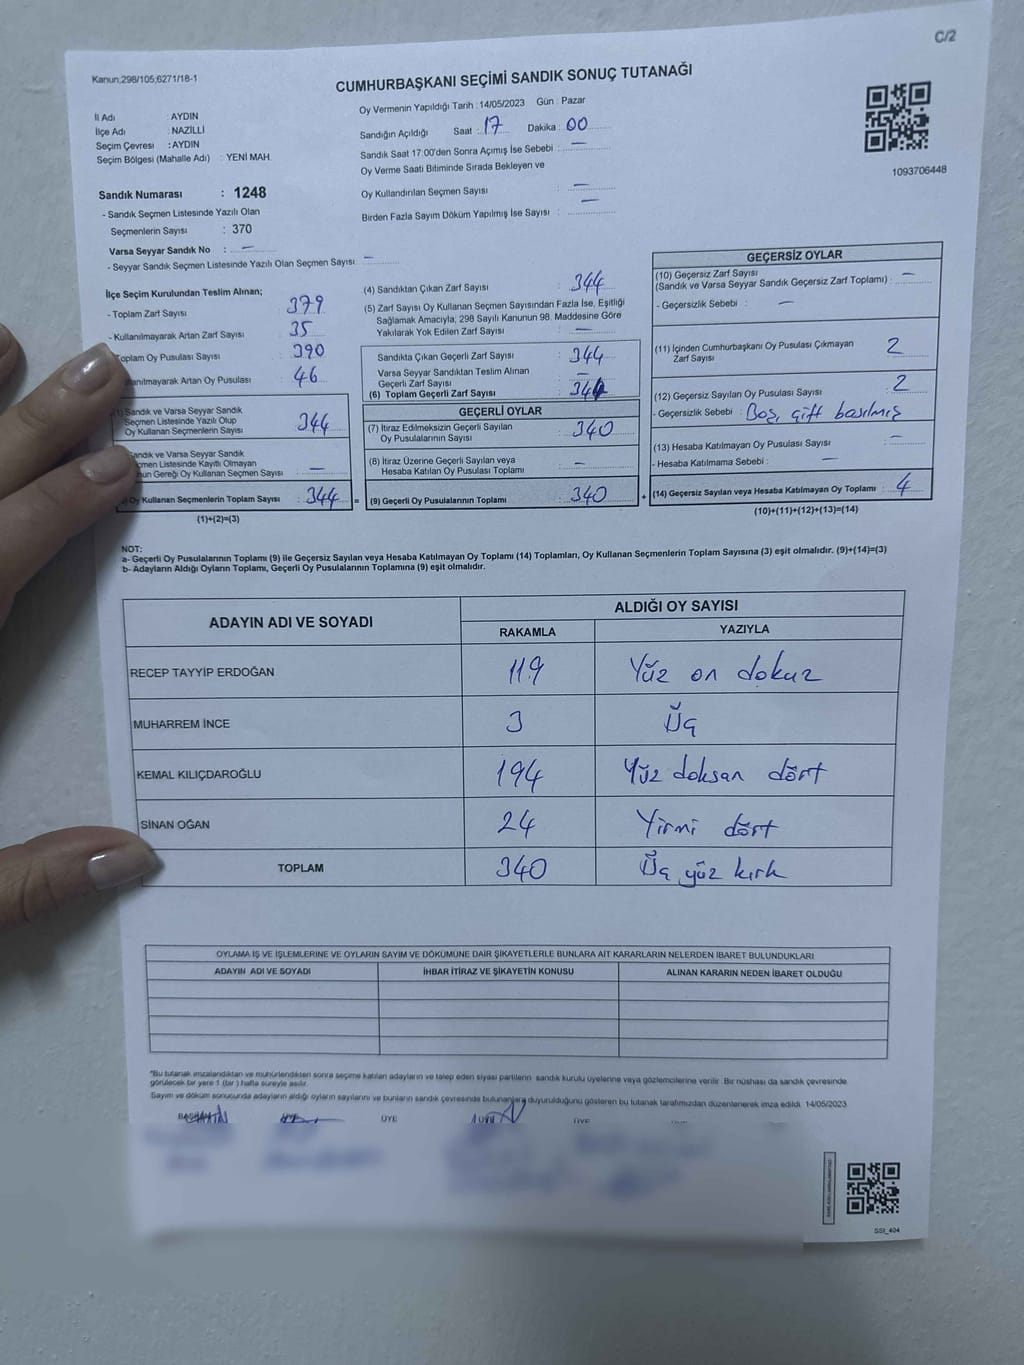 C/2
Kanun;298/105;6271/18-1
CUMHURBAŞKANI SEÇİMİ SANDIK SONUÇ TUTANAĞI
İl Adı : AYDIN
İlçe Adı : NAZİLLİ
Seçim Çevresi : AYDIN
Seçim Bölgesi (Mahalle Adı) : YENİ MAH.
Oy Vermenin Yapıldığı Tarih : 14/05/2023 Gün : Pazar
Sandığın Açıldığı Saat : 17 Dakika : 00
Sandık Saat 17:00'den Sonra Açımış İse Sebebi : —
Oy Verme Saati Bitiminde Sırada Bekleyen ve
Oy Kullandırılan Seçmen Sayısı : —
Birden Fazla Sayım Döküm Yapılmış İse Sayısı : —
1093706448
Sandık Numarası : 1248
- Sandık Seçmen Listesinde Yazılı Olan
Seçmenlerin Sayısı : 370
Varsa Seyyar Sandık No : —
- Seyyar Sandık Seçmen Listesinde Yazılı Olan Seçmen Sayısı : —
İlçe Seçim Kurulundan Teslim Alınan;
- Toplam Zarf Sayısı : 379
- Kullanılmayarak Artan Zarf Sayısı : 35
Toplam Oy Pusulası Sayısı : 390
Artan Oy Pusulası : 46
(1) Sandık ve Varsa Seyyar Sandık
Seçmen Listesinde Yazılı Olup
Oy Kullanan Seçmenlerin Sayısı : 344
Sandık ve Varsa Seyyar Sandık
Listesinde Kayıtlı Olmayan
Gereği Oy Kullanan Seçmen Sayısı : —
Oy Kullanan Seçmenlerin Toplam Sayısı : 344 =
(1)+(2)=(3)
(4) Sandıktan Çıkan Zarf Sayısı : 344
(5) Zarf Sayısı Oy Kullanan Seçmen Sayısından Fazla İse, Eşitliği
Sağlamak Amacıyla; 298 Sayılı Kanunun 98. Maddesine Göre
Yakılarak Yok Edilen Zarf Sayısı : —
Sandıkta Çıkan Geçerli Zarf Sayısı : 344
Varsa Seyyar Sandıktan Teslim Alınan
Geçerli Zarf Sayısı : —
(6) Toplam Geçerli Zarf Sayısı : 344
GEÇERLİ OYLAR
(7) İtiraz Edilmeksizin Geçerli Sayılan
Oy Pusulalarının Sayısı : 340
(8) İtiraz Üzerine Geçerli Sayılan veya
Hesaba Katılan Oy Pusulası Toplamı : —
(9) Geçerli Oy Pusulalarının Toplamı : 340 +
GEÇERSİZ OYLAR
(10) Geçersiz Zarf Sayısı
(Sandık ve Varsa Seyyar Sandık Geçersiz Zarf Toplamı) : —
- Geçersizlik Sebebi : —
(11) İçinden Cumhurbaşkanı Oy Pusulası Çıkmayan
Zarf Sayısı : 2
(12) Geçersiz Sayılan Oy Pusulası Sayısı : 2
- Geçersizlik Sebebi : Boş, çift basılmış
(13) Hesaba Katılmayan Oy Pusulası Sayısı : —
- Hesaba Katılmama Sebebi : —
(14) Geçersiz Sayılan veya Hesaba Katılmayan Oy Toplamı : 4
(10)+(11)+(12)+(13)=(14)
NOT:
a- Geçerli Oy Pusulalarının Toplamı (9) ile Geçersiz Sayılan veya Hesaba Katılmayan Oy Toplamı (14) Toplamları, Oy Kullanan Seçmenlerin Toplam Sayısına (3) eşit olmalıdır. (9)+(14)=(3)
b- Adayların Aldığı Oyların Toplamı, Geçerli Oy Pusulalarının Toplamına (9) eşit olmalıdır.
ADAYIN ADI VE SOYADI ALDIĞI OY SAYISI
RAKAMLA YAZIYLA
RECEP TAYYİP ERDOĞAN 119 Yüz on dokuz
MUHARREM İNCE 3 Üç
KEMAL KILIÇDAROĞLU 194 Yüz doksan dört
SİNAN OĞAN 24 Yirmi dört
TOPLAM 340 Üç yüz kırk
OYLAMA İŞ VE İŞLEMLERİNE VE OYLARIN SAYIM VE DÖKÜMÜNE DAİR ŞİKAYETLERLE BUNLARA AİT KARARLARIN NELERDEN İBARET BULUNDUKLARI
ADAYIN ADI VE SOYADI İHBAR İTİRAZ VE ŞİKAYETİN KONUSU ALINAN KARARIN NEDEN İBARET OLDUĞU
*Bu tutanak imzalandıktan ve mühürlendikten sonra seçime katılan adayların ve talep eden siyasi partilerin sandık kurulu üyelerine veya gözlemcilerine verilir. Bir nüshası da sandık çevresinde
görülecek bir yere 1 (bir) hafta süreyle asılır.
Sayım ve döküm sonucunda adayların aldığı oyların sayılarını ve bunların sandık çevresinde bulunanlara duyurulduğunu gösteren bu tutanak tarafımızdan düzenlenerek imza edildi. 14/05/2023
BAŞKAN ÜYE ÜYE ÜYE ÜYE
SSİ_404